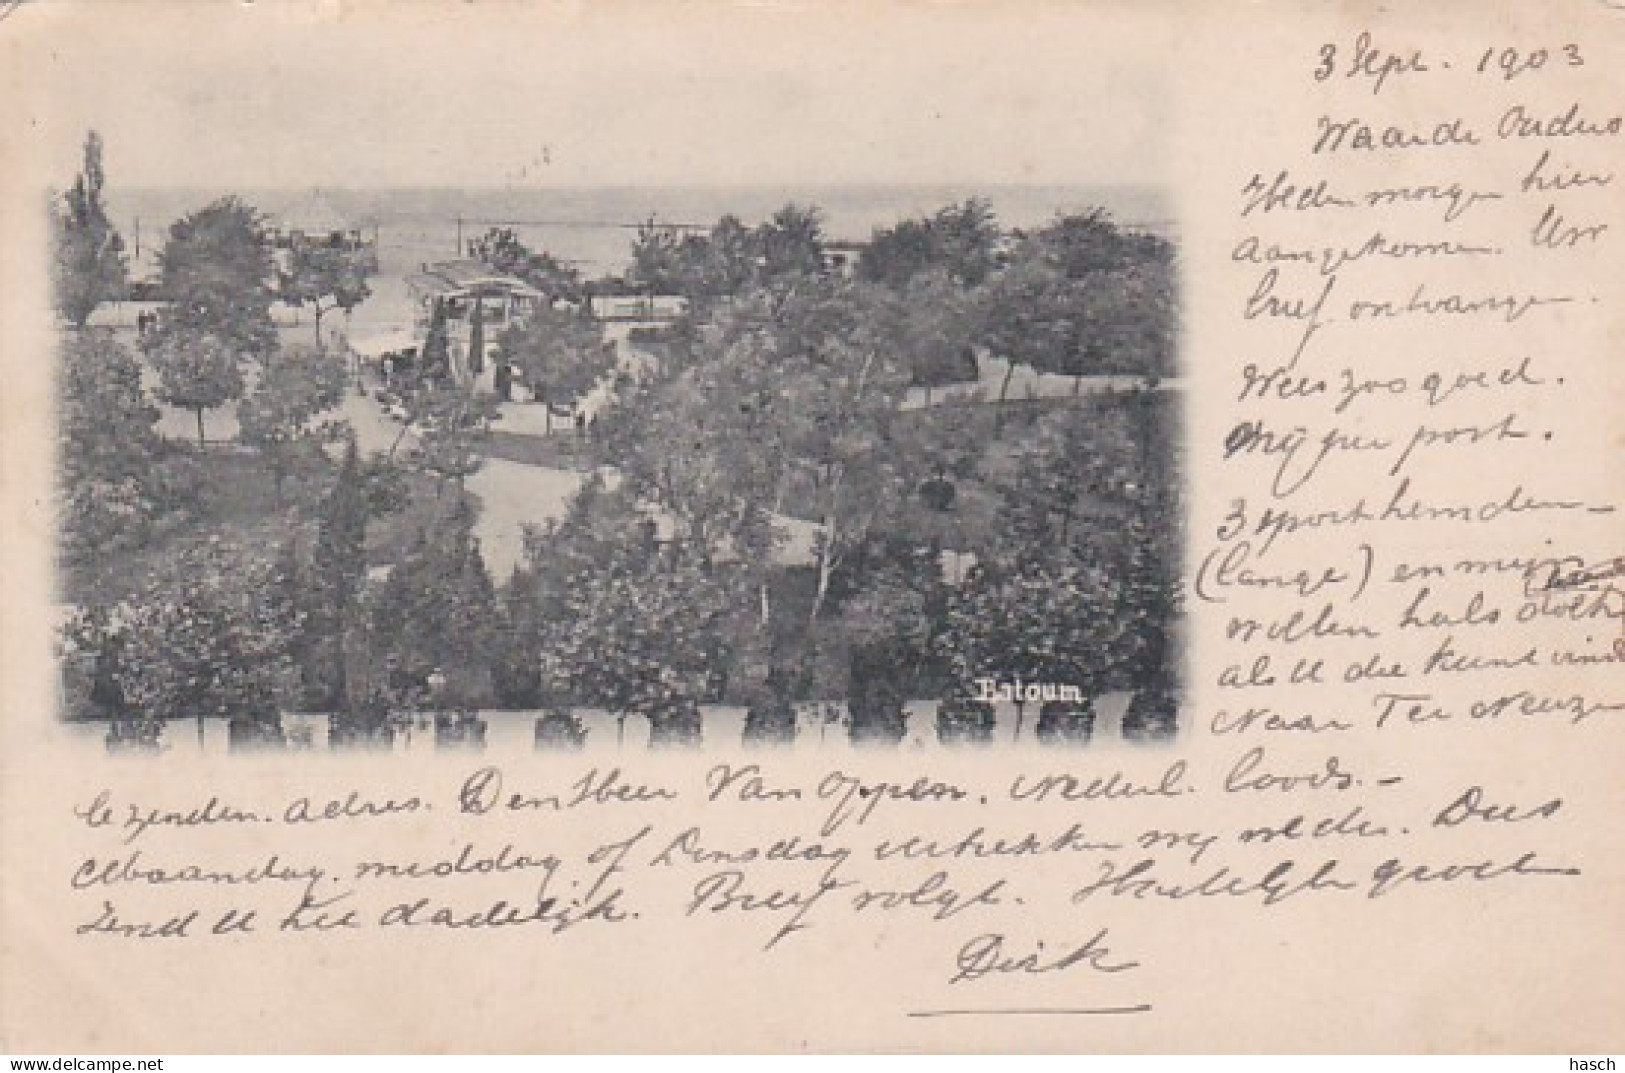 3 Sept. 1903
Waarde Ouders
Heden morgen hier
aangekomen. Uw
brief ontvangen.
Wees zoo goed.
Mij per post.
3 sporthemden
(lange) en mijn
wollen halsdoek
als U die kunt vinden
Naar Ter Neuzen
te zenden. adres. Den Heer Van Oppen. Nederl. Loods.
Maandag. middag of Dinsdag vertrekken wij weder. Dus
zend U het dadelijk. Brief volgt. Hartelijk groet
Dirk
Batoum
delcampe.net
hasch